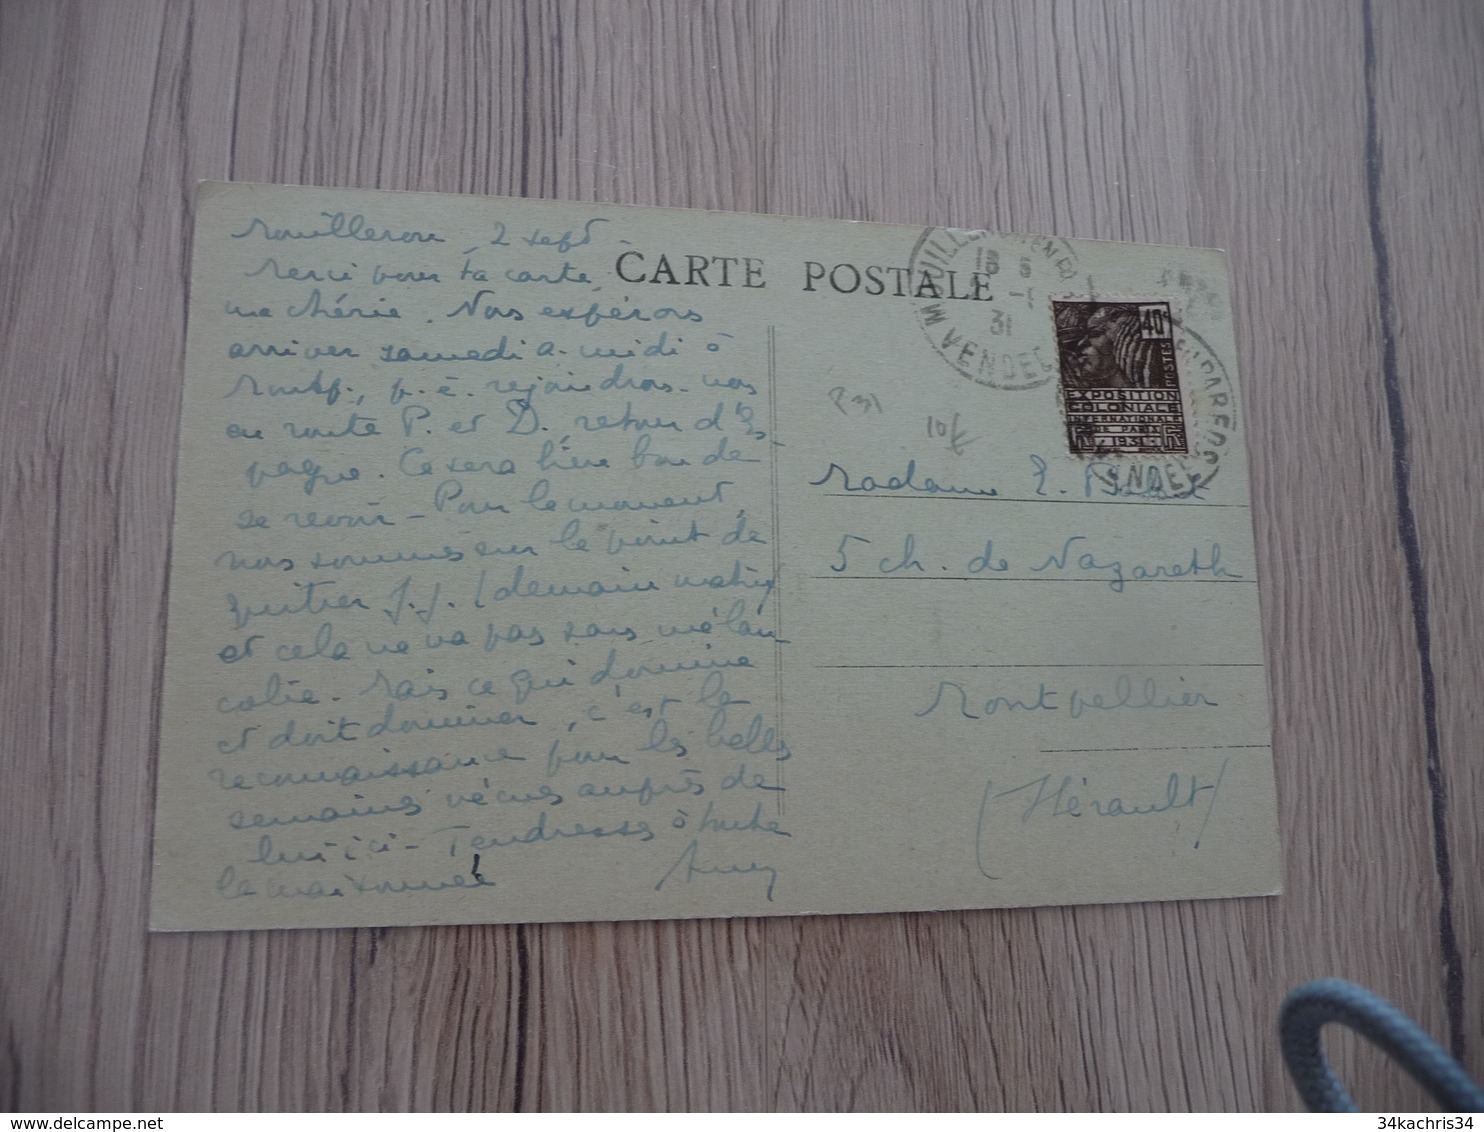 Mouilleron, 2 sept -
Merci pour ta carte,
ma chérie. Nous espérons
arriver samedi a. midi à
Montp., p. ê. rejoindrons-nous
en route P. et D. retour d'Es-
pagne. Ce sera bien bon de
se revoir - Pour le moment,
nous sommes sur le point de
quitter J. J. (demain matin)
et cela ne va pas sans mélan-
colie. Mais ce qui domine
et doit dominer, c'est la
reconnaissance pour les belles
semaines vécues auprès de
lui ici - Tendresses à toute
la maisonnée
CARTE POSTALE
VENDEE
31
40c
POSTES
EXPOSITION
COLONIALE
INTERNATIONALE
DE PARIS
1931
Madame E.
5 ch. de Nazareth
Montpellier
(Hérault)
34kachris34
delcampe.net